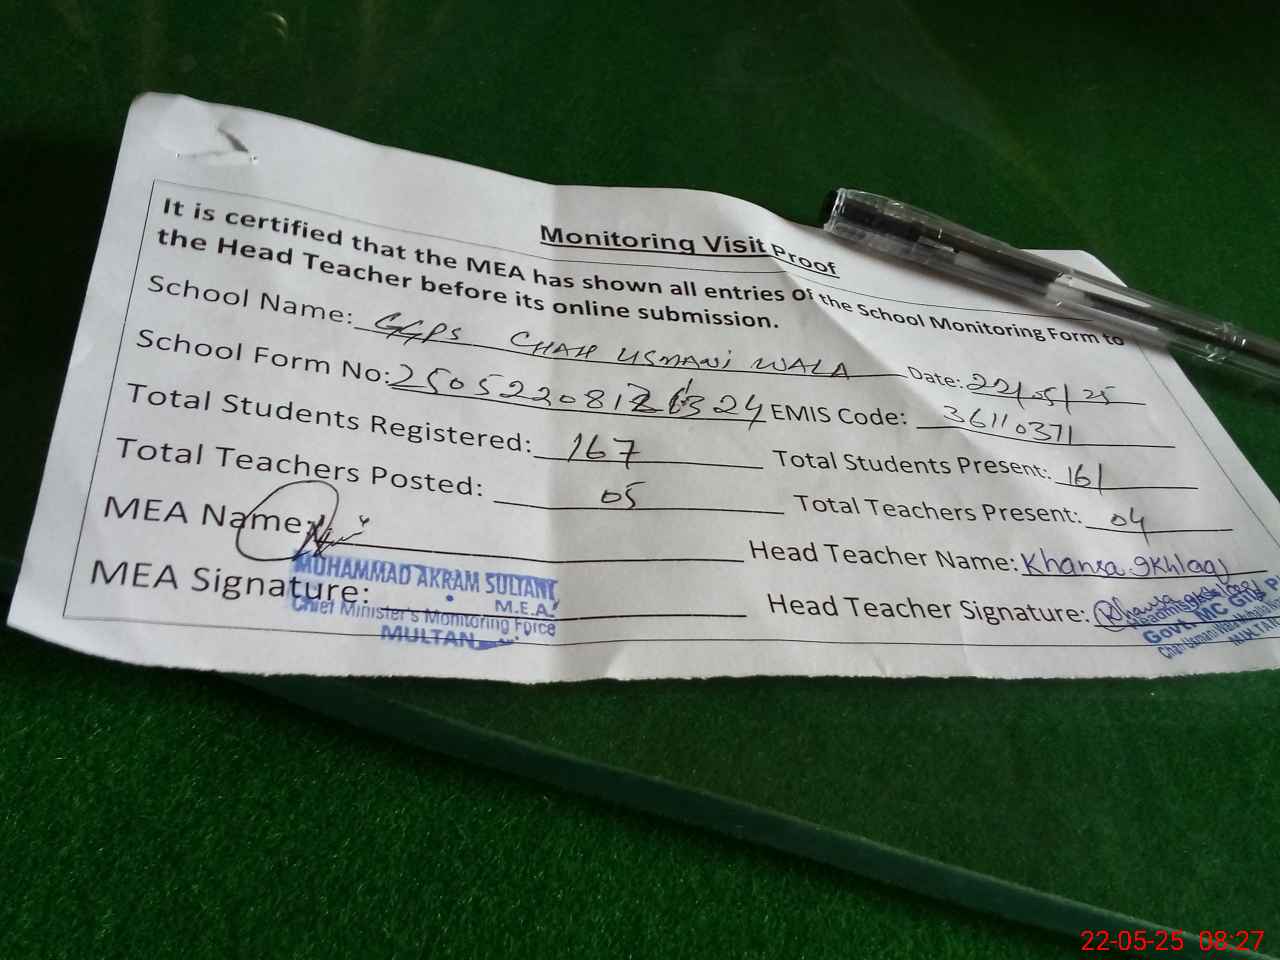 Monitoring Visit Proof
It is certified that the MEA has shown all entries of the School Monitoring Form to
the Head Teacher before its online submission.
School Name: GGPS CHAH USMANI WALA Date: 22/05/25
School Form No: EMIS Code: 36110371
Total Students Registered: 167 Total Students Present: 161
Total Teachers Posted: 05 Total Teachers Present: 04
MEA Name: Head Teacher Name: Khansa Ikhlaq
MEA Signature: Head Teacher Signature:
MUHAMMAD AKRAM SULTANI
M.E.A
Chief Minister's Monitoring Force
MULTAN
Govt. MC
22-05-25 08:27